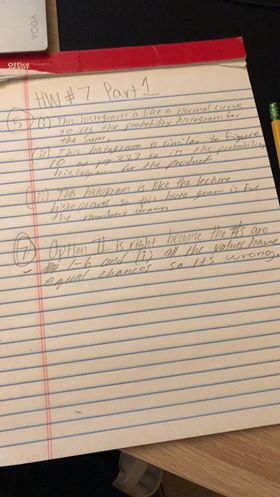 YOGA
Office
HW #7 Part 1
5 (i) This histogram is like a normal curve
so its the probability histogram for
the sum.
(ii) This histogram is similar to Figure
10 on pp 323 so its the probability
histogram for the product
(iii) This histogram is like the lecture
histograms so this histogram is for
the numbers drawn
7 Option II is right because the #s are
1-6 and (i) all the values have
equal chances so its wrong.